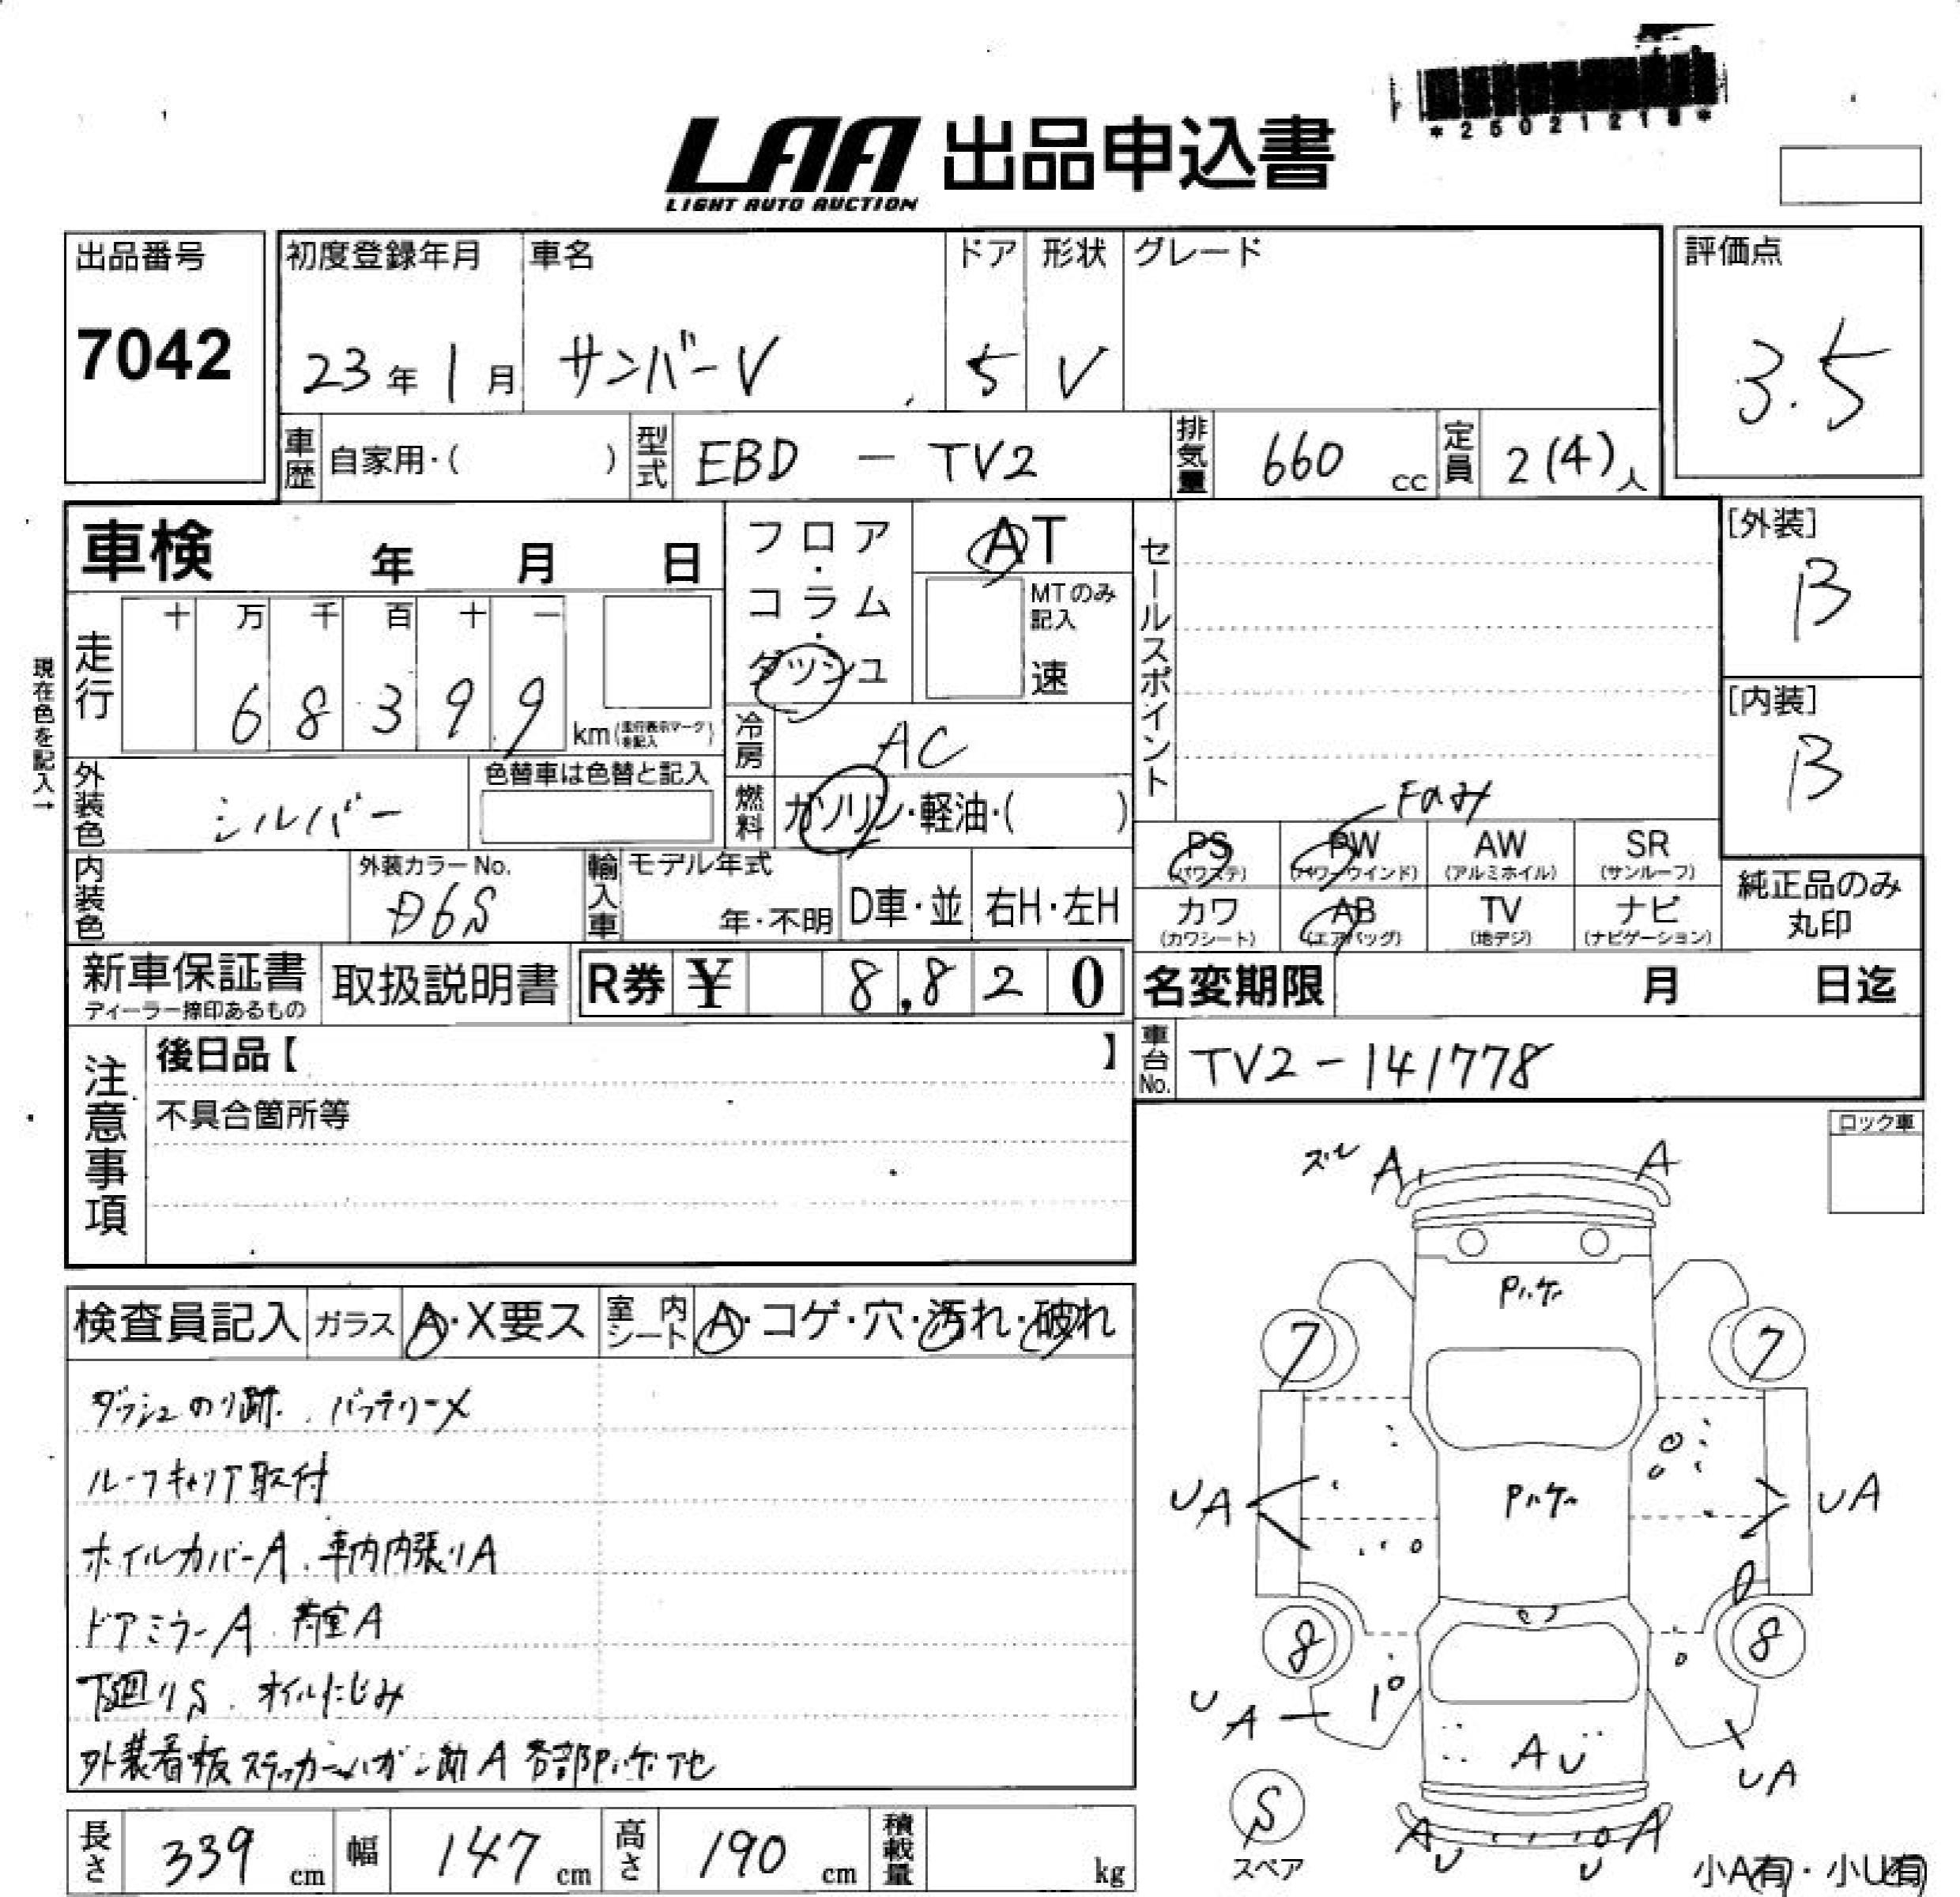 *25021218*
LAA 出品申込書
LIGHT AUTO AUCTION
出品番号
7042
初度登録年月
23年1月
車名
サンバーV
ドア
5
形状
V
グレード
評価点
3.5
車歴 自家用・( )
型式 EBD - TV2
排気量 660 cc
定員 2(4)人
車検 年 月 日
フロア・コラム・ダッシュ
AT
MTのみ記入
速
セールスポイント
[外装]
B
[内装]
B
現在色を記入→
走行
十 万 千 百 十 一
6 8 3 9 9
km(走行表示マークを記入)
冷房 AC
外装色 シルバー
色替車は色替と記入
燃料 ガソリン・軽油・( )
Fのみ
PS (パワステ)
PW (パワーウインド)
AW (アルミホイル)
SR (サンルーフ)
カワ (カワシート)
AB (エアバッグ)
TV (地デジ)
ナビ (ナビゲーション)
純正品のみ
丸印
内装色
外装カラーNo.
D6S
輸入車
モデル年式
年・不明
D車・並
右H・左H
新車保証書
ディーラー捺印あるもの
取扱説明書
R券 ¥ 8,820
名変期限 月 日迄
車台No. TV2-141778
注意事項
後日品【 】
不具合箇所等
ロック車
検査員記入
ガラス A・X要ス
室内シート A・コゲ・穴・汚れ・破れ
ダッシュのり跡. バッテリーX
ルーフキャリア取付
ホイルカバーA. 車内内張りA
ドアミラーA. 荷室A
下廻りS. オイルにじみ
外装看板ステッカーハガシ跡A 各部Pハゲアセ
長さ 339 cm
幅 147 cm
高さ 190 cm
積載量 kg
ズレ A A
Pハゲ
7 7
UA Pハゲ UA
8 8
UA AU UA
S
スペア
A A
U U
小A(有)・小U(有)